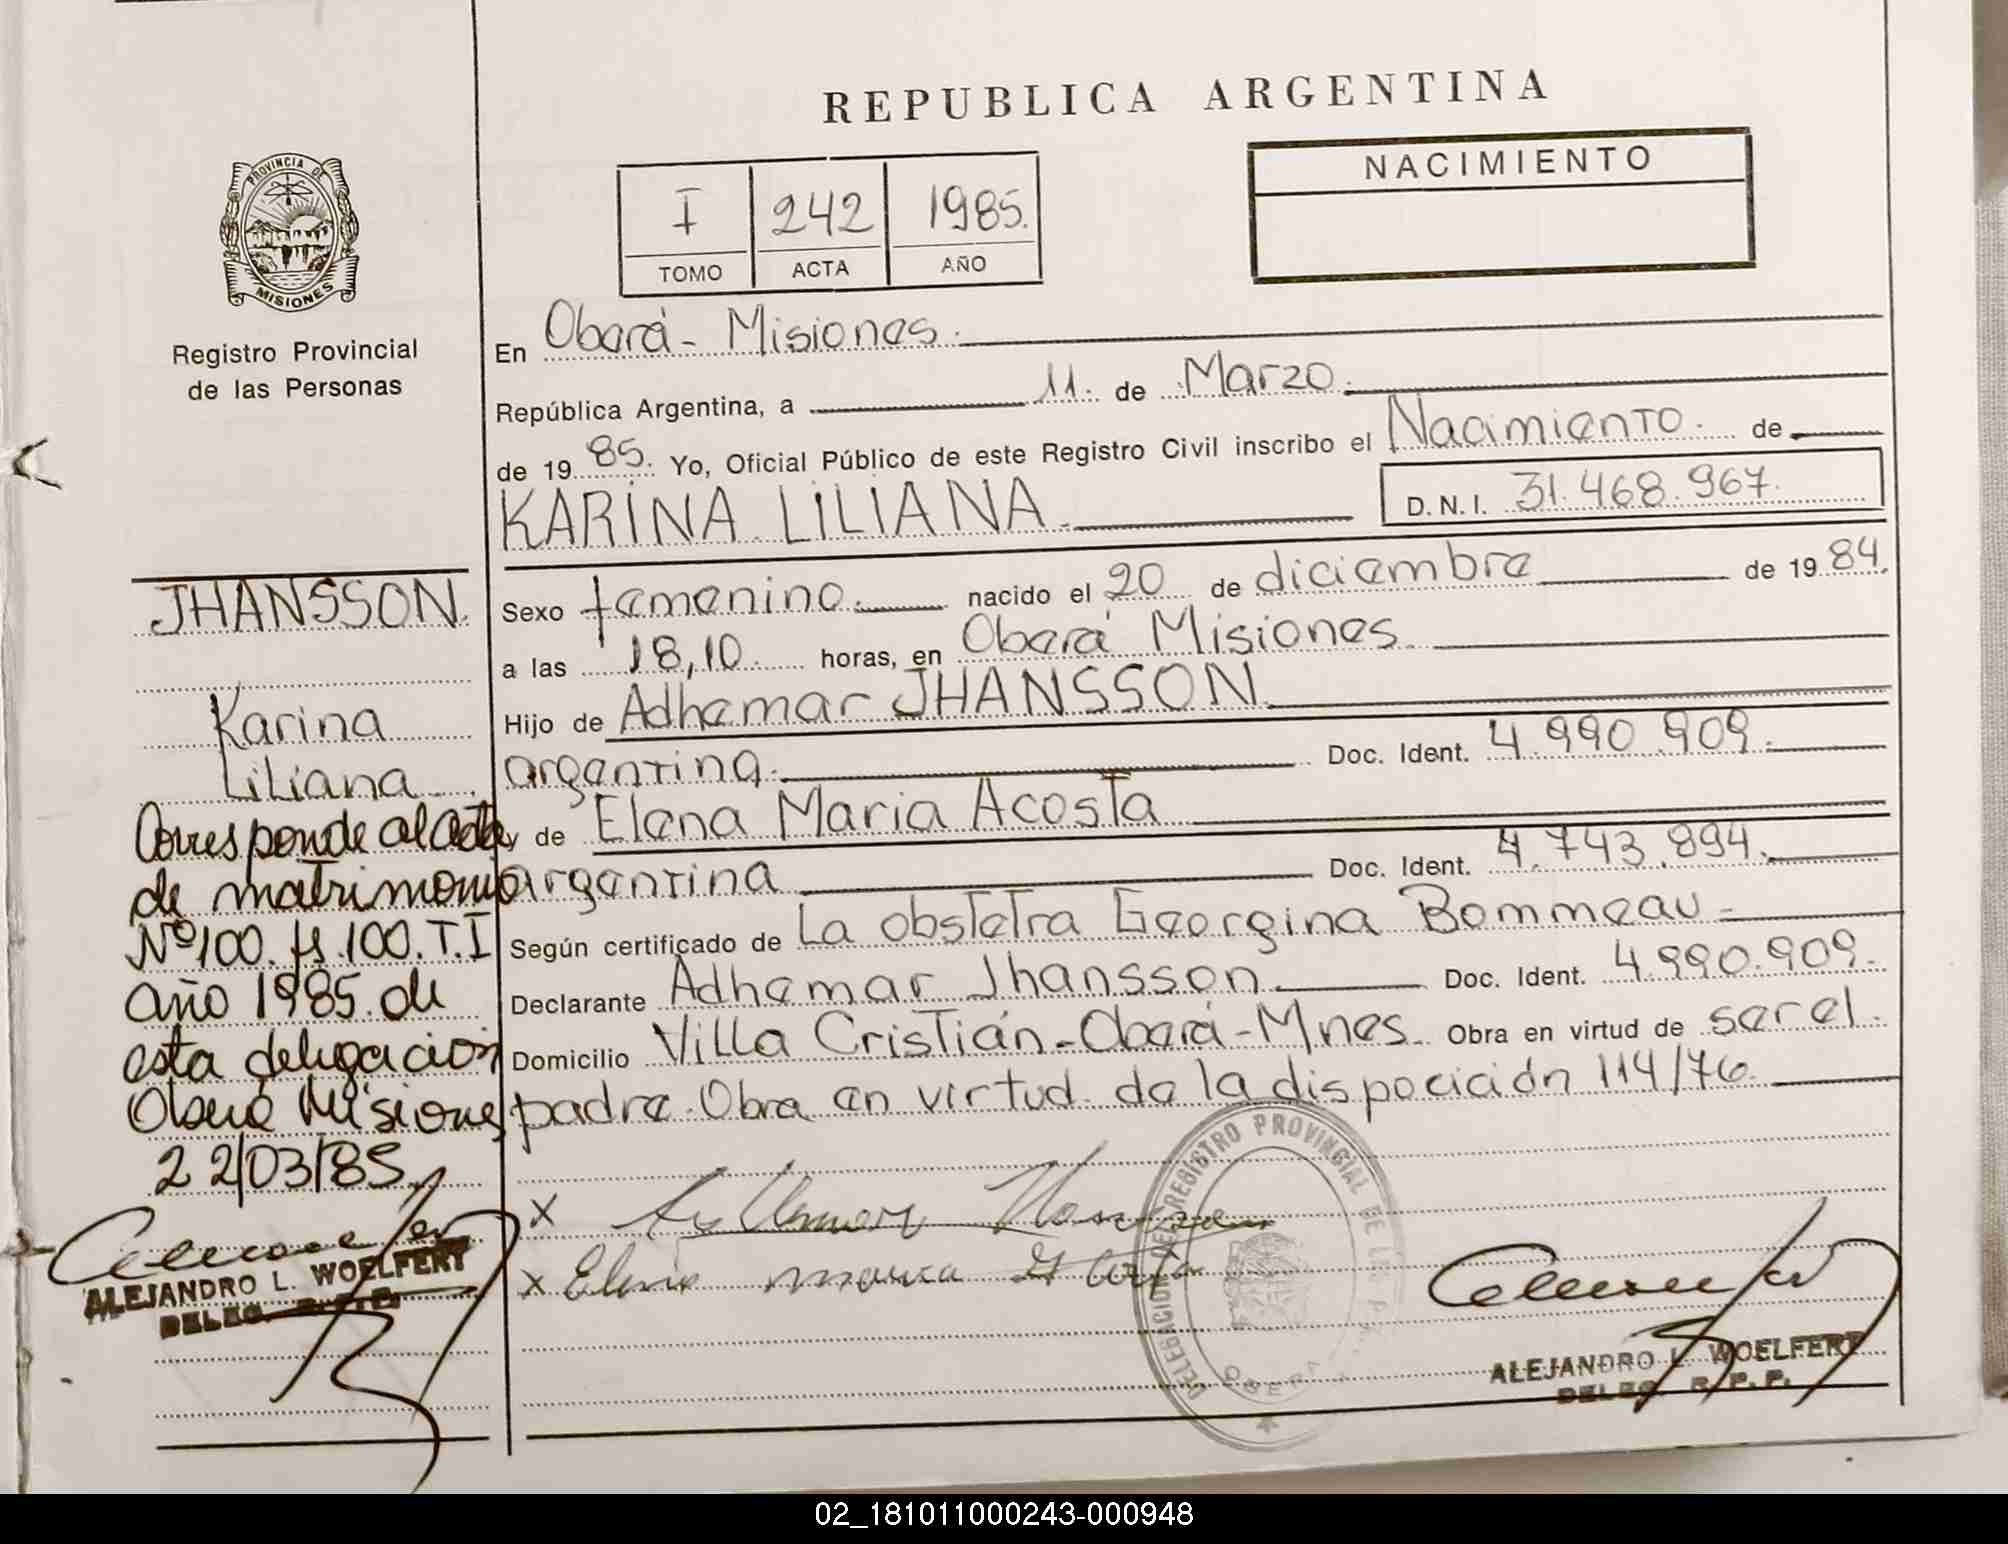 REPUBLICA ARGENTINA
PROVINCIA DE
MISIONES
Registro Provincial
de las Personas
NACIMIENTO
I 242 1985.
TOMO ACTA AÑO
En Oberá - Misiones.
República Argentina, a 11. de Marzo.
de 19 85. Yo, Oficial Público de este Registro Civil inscribo el Nacimiento. de
KARINA LILIANA D.N.I. 31.468.967.
Sexo femenino. nacido el 20 de diciembre de 19 84.
a las 18,10. horas, en Oberá Misiones.
Hijo de Adhemar JHANSSON.
argentina. Doc. Ident. 4.990.909.
y de Elena Maria Acosta
argentina Doc. Ident. 4.743.894.
Según certificado de La obstetra Georgina Bommeau -
Declarante Adhemar Jhansson. Doc. Ident. 4.990.909.
Domicilio Villa Cristián - Oberá - Mnes. Obra en virtud de ser el
padre. Obra en virtud de la dispocición 114/76.
JHANSSON.
Karina
Liliana
Corresponde al acta
de matrimonio
Nº 100. fs. 100. T. I
año 1985. de
esta delegación
Oberá Misiones
22/03/85.
ALEJANDRO L. WOELFERT
DELEG. R. P. P.
x
x Elena maria
DELEGACION DEL REGISTRO PROVINCIAL DE LAS P.
OBERA
ALEJANDRO L. WOELFERT
DELEG. R. P. P.
02_181011000243-000948